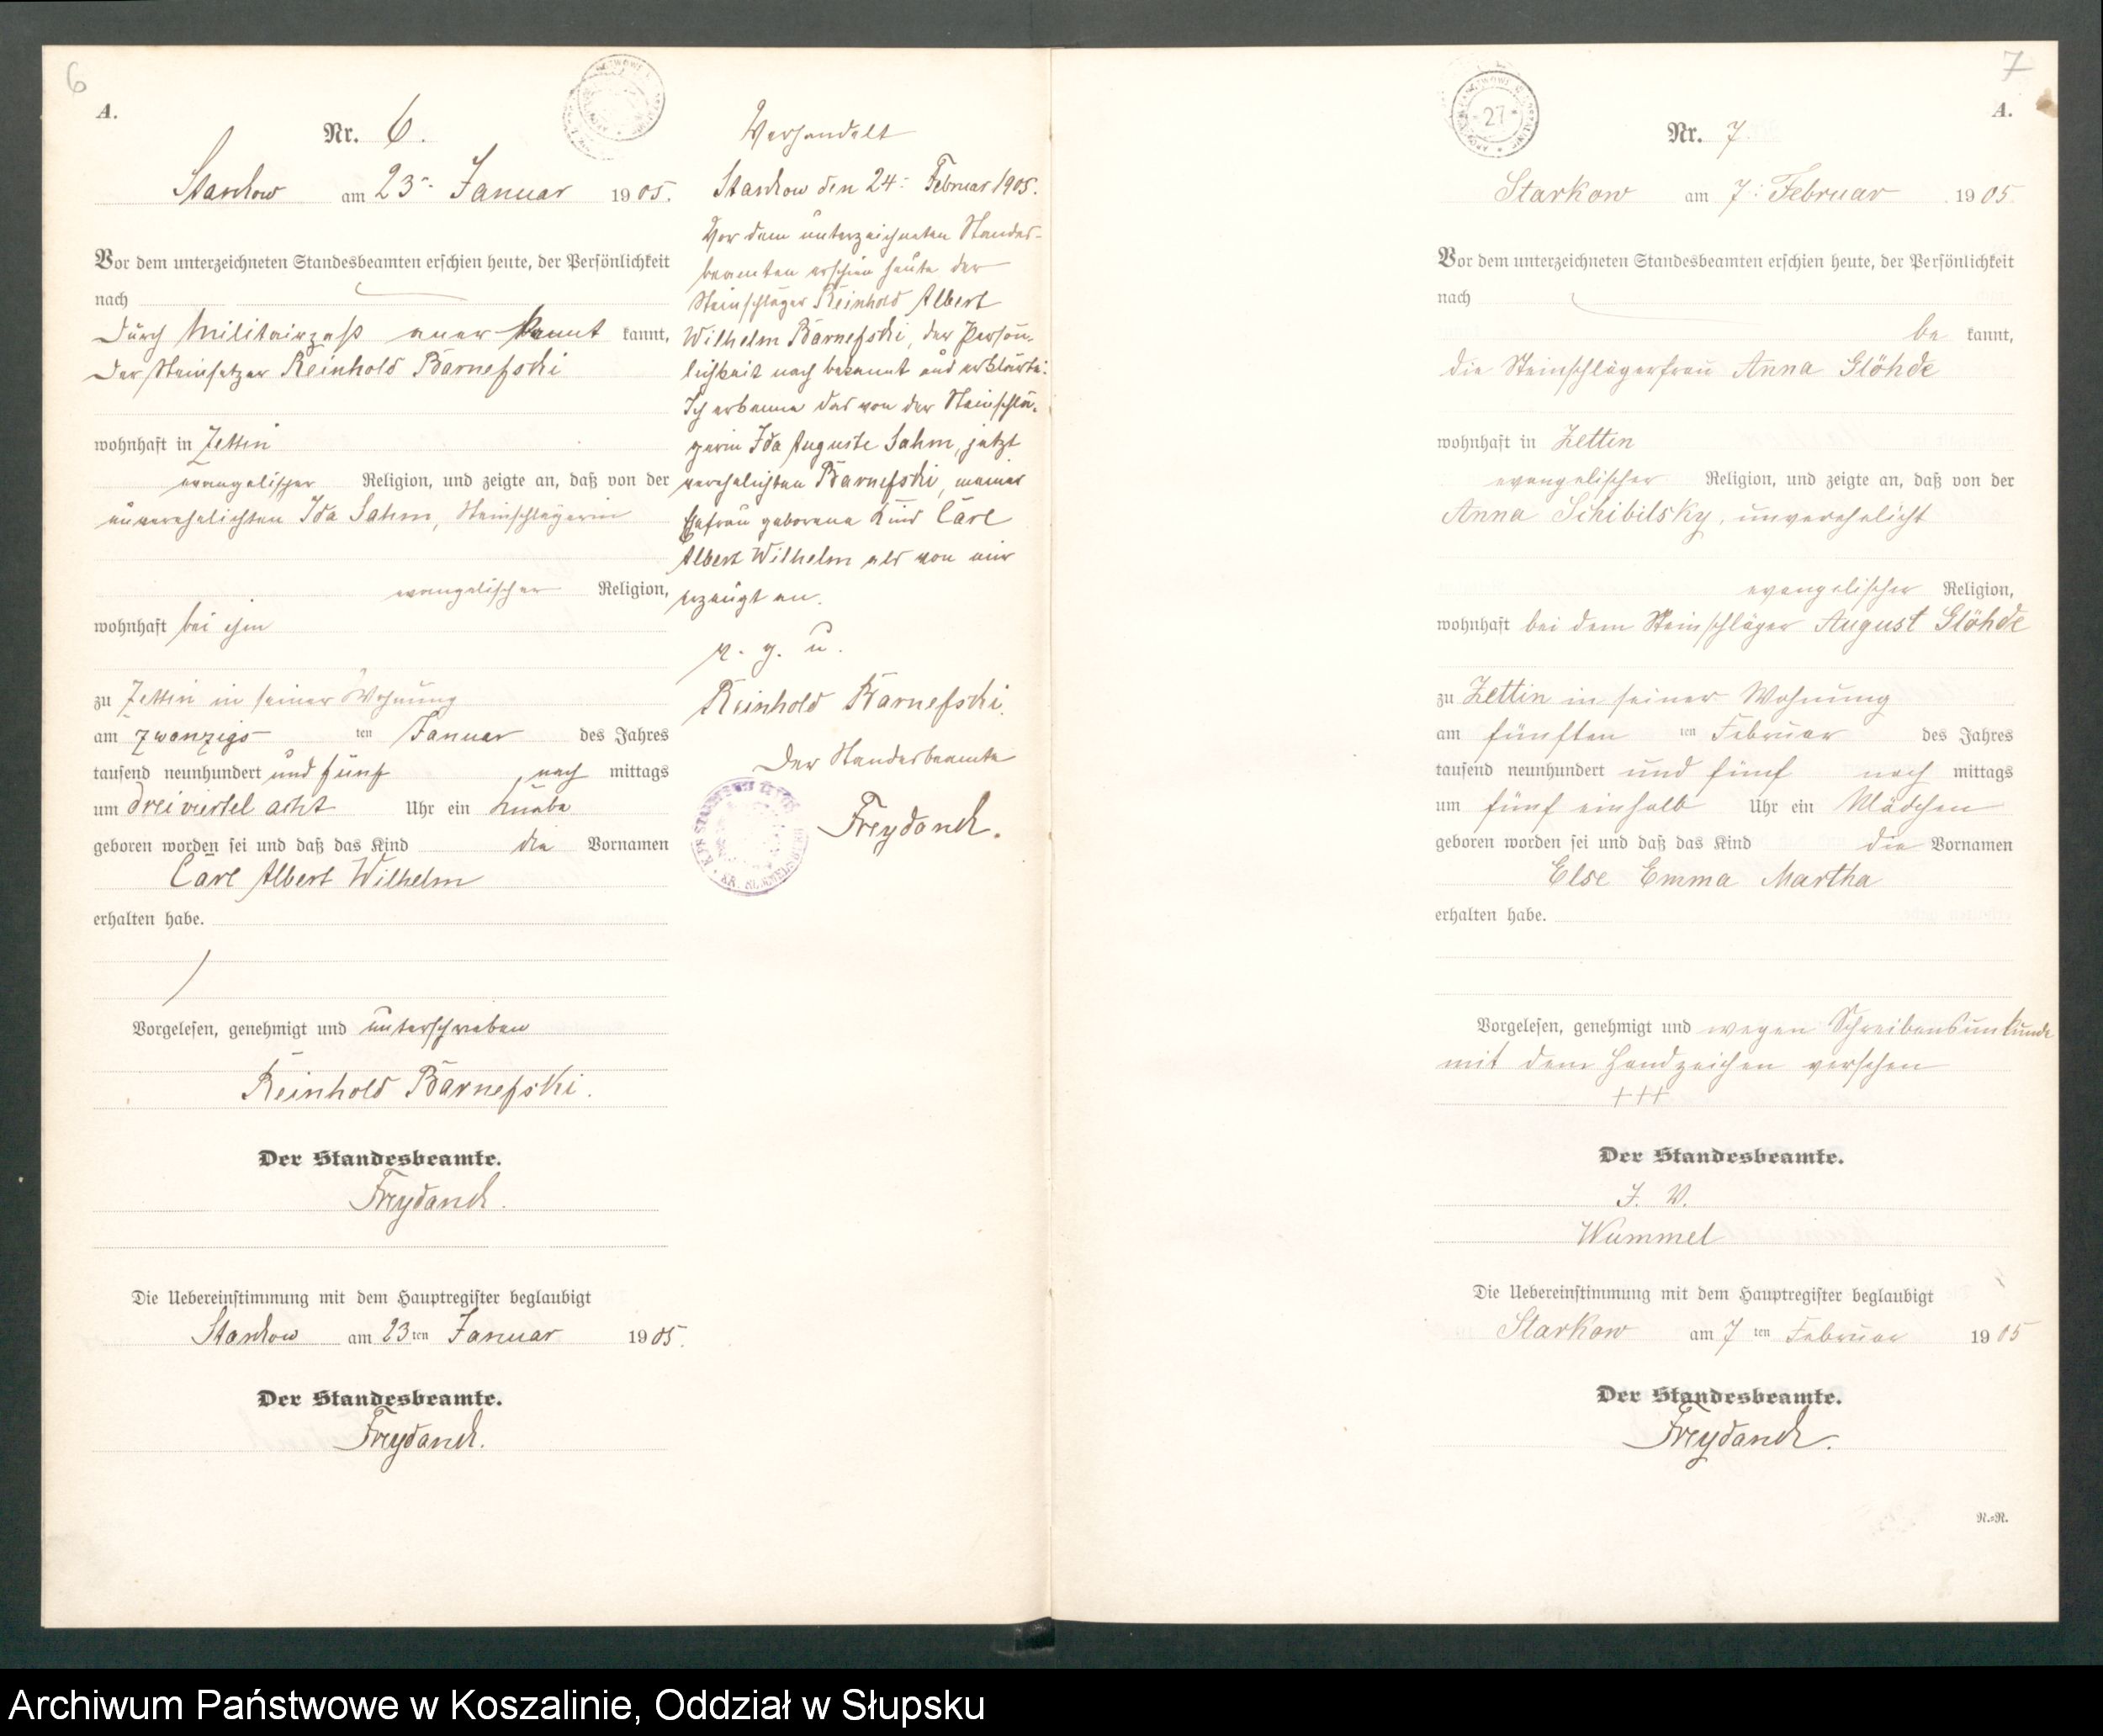 6
A.
Nr. 6.
Starkow am 23ten Januar 1905.
Vor dem unterzeichneten Standesbeamten erschien heute, der Persönlichkeit
nach
durch Militairpaß aner kannt kannt,
der Steinsetzer Reinhold Barnefski
wohnhaft in Zettin
evangelischer Religion, und zeigte an, daß von der
unverehelichten Ida Sahm, Steinschlägerin
evangelischer Religion,
wohnhaft bei ihm
zu Zettin in seiner Wohnung
am zwanzigs ten Januar des Jahres
tausend neunhundert und fünf nach mittags
um dreiviertel acht Uhr ein Knabe
geboren worden sei und daß das Kind die Vornamen
Carl Albert Wilhelm
erhalten habe.
Vorgelesen, genehmigt und unterschrieben
Reinhold Barnefski.
Der Standesbeamte.
Freydanck.
Die Uebereinstimmung mit dem Hauptregister beglaubigt
Starkow am 23ten Januar 1905.
Der Standesbeamte.
Freydanck.
Verhandelt
Starkow den 24ten Februar 1905.
Vor dem unterzeichneten Standes-
beamten erschien heute der
Steinschläger Reinhold Albert
Wilhelm Barnefski, der Persön-
lichkeit nach bekannt und erklärte:
Ich erkenne das von der Steinschlä-
gerin Ida Auguste Sahm, jetzt
verehelichten Barnefski, meiner
Ehefrau geborene Kind Carl
Albert Wilhelm als von mir
erzeugt an.
v. g. u.
Reinhold Barnefski.
Der Standesbeamte
Freydanck.
7
27
A.
Nr. 7.
Starkow am 7ten Februar 1905.
Vor dem unterzeichneten Standesbeamten erschien heute, der Persönlichkeit
nach
be kannt,
die Steinschlägerfrau Anna Glöhde
wohnhaft in Zettin
evangelischer Religion, und zeigte an, daß von der
Anna Schibilsky, unverehelicht
evangelischer Religion,
wohnhaft bei dem Steinschläger August Glöhde
zu Zettin in seiner Wohnung
am fünften ten Februar des Jahres
tausend neunhundert und fünf nach mittags
um fünf einhalb Uhr ein Mädchen
geboren worden sei und daß das Kind die Vornamen
Else Emma Martha
erhalten habe.
Vorgelesen, genehmigt und wegen Schreibensunkunde
mit dem Handzeichen versehen
+++
Der Standesbeamte.
J. V.
Wummel
Die Uebereinstimmung mit dem Hauptregister beglaubigt
Starkow am 7 ten Februar 1905
Der Standesbeamte.
Freydanck.
N.=N.
Archiwum Państwowe w Koszalinie, Oddział w Słupsku